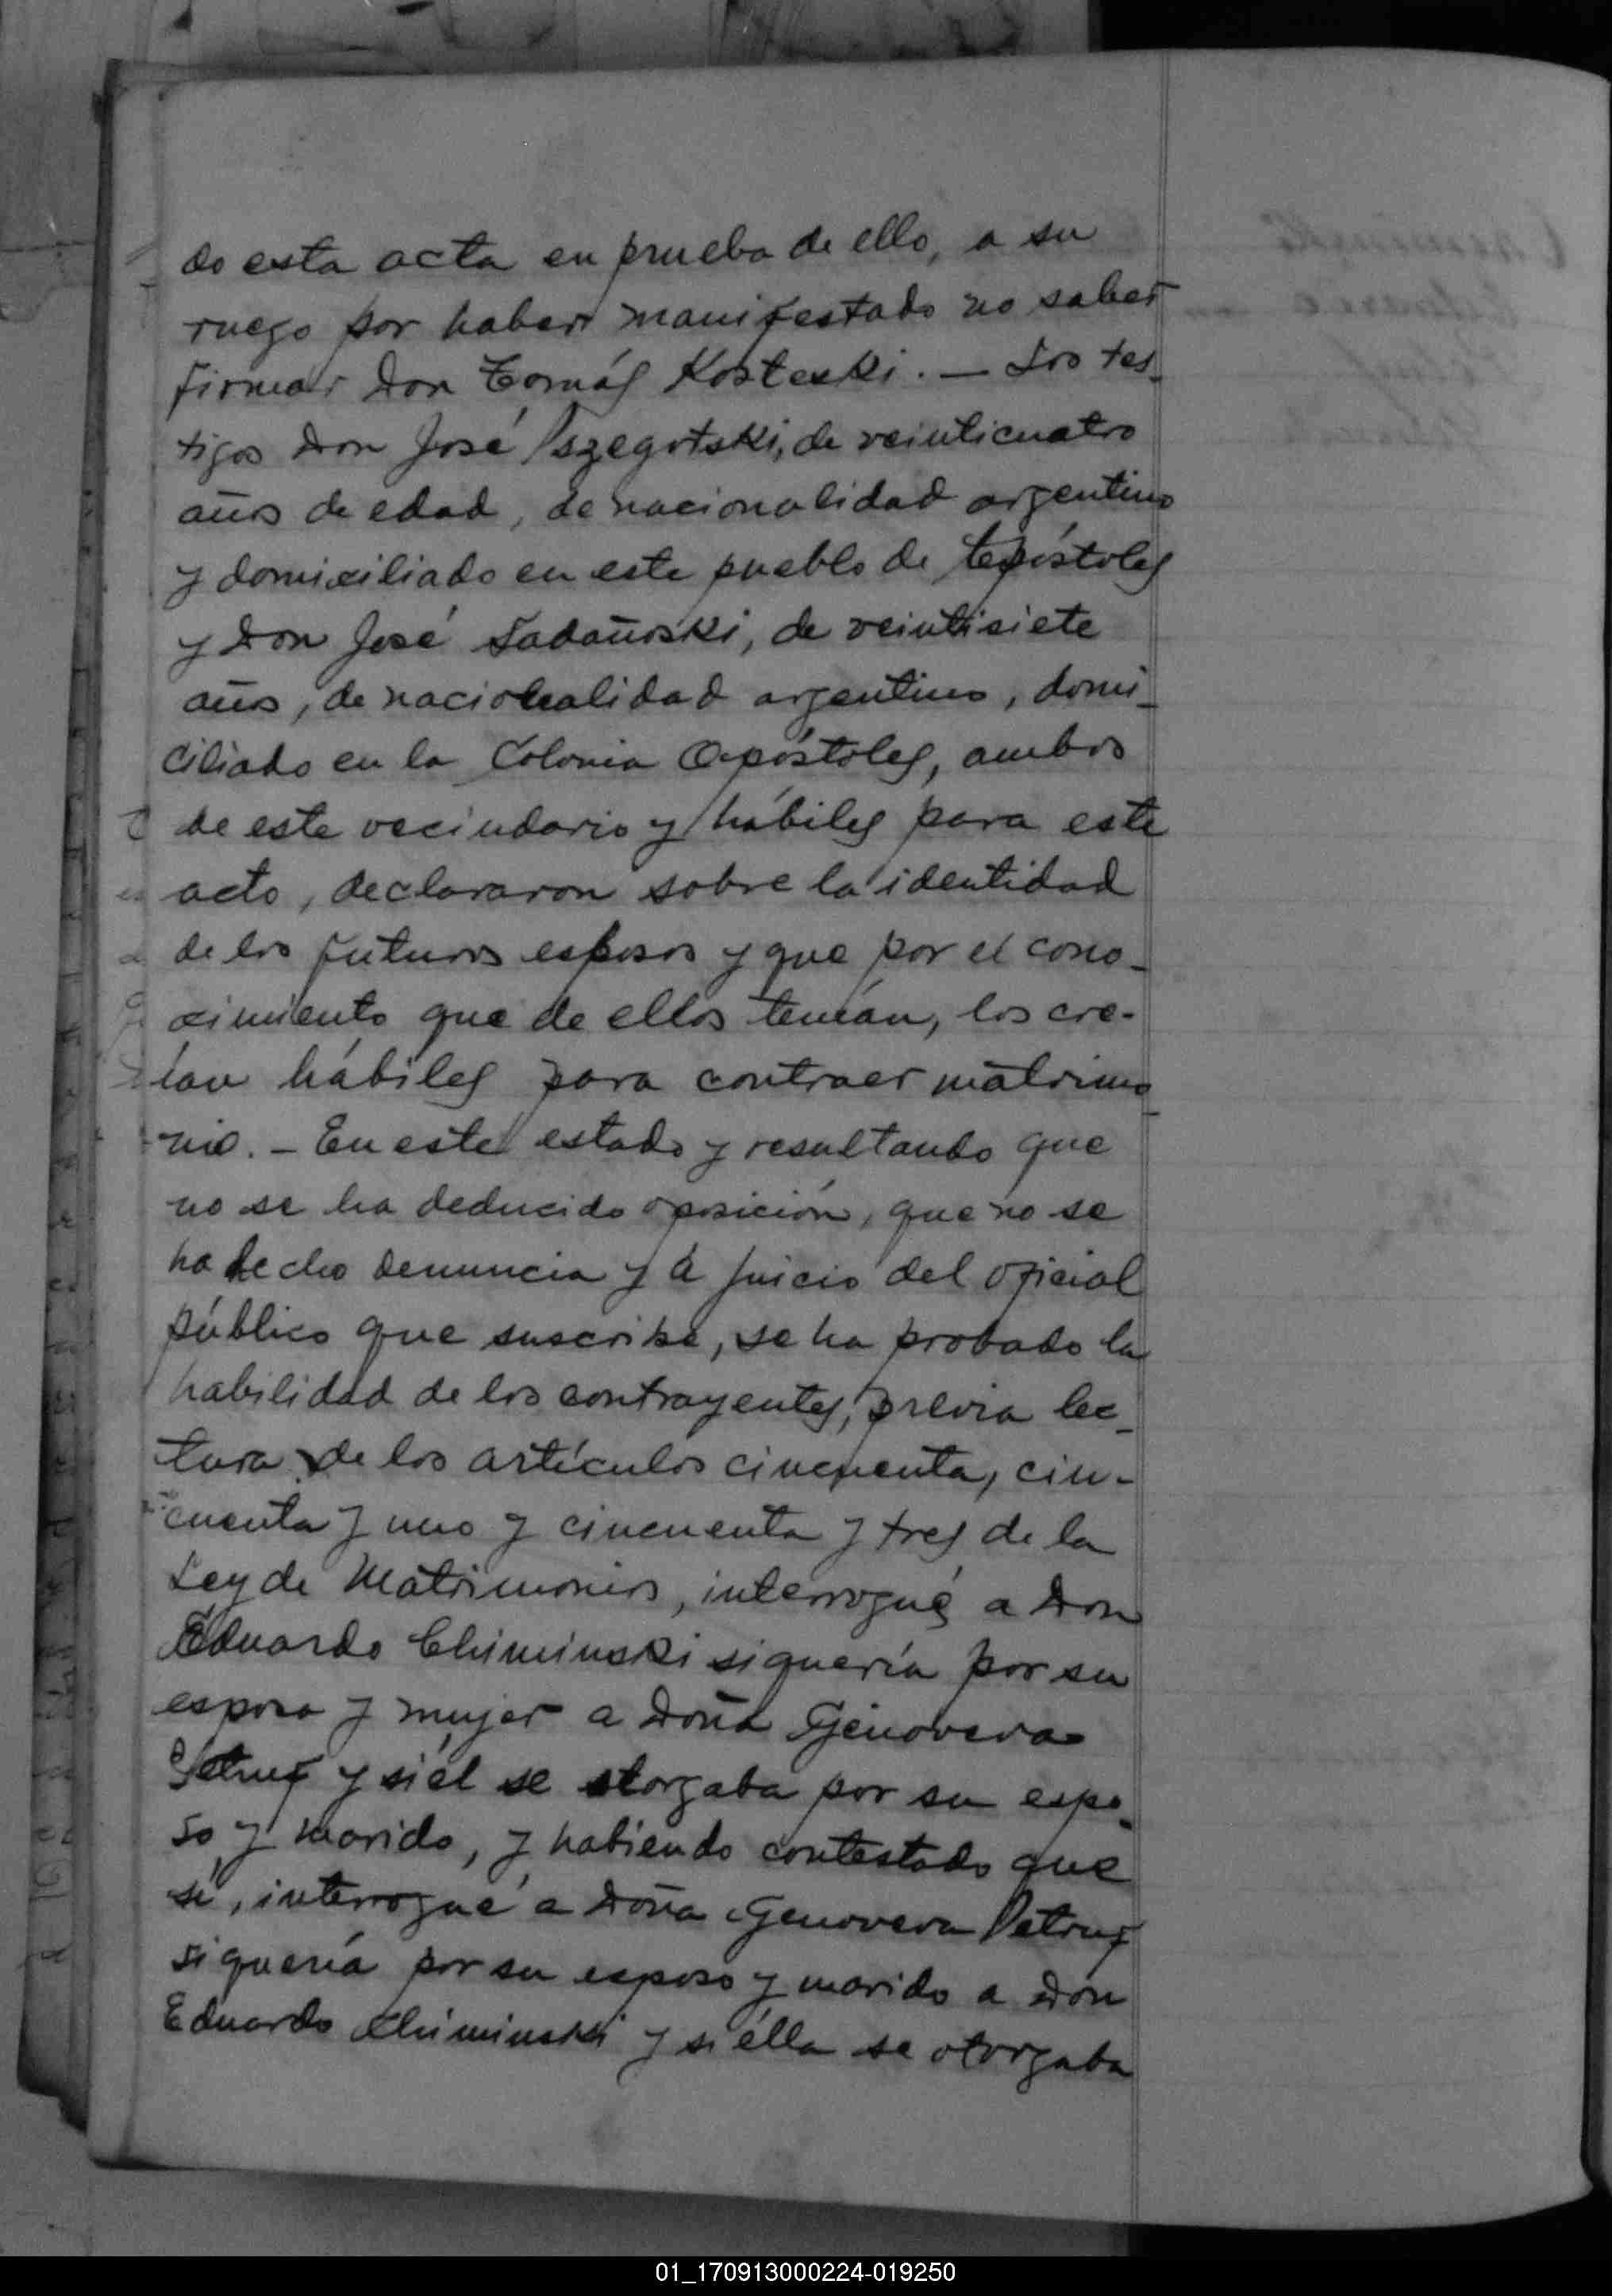 do esta acta en prueba de ello, a su
ruego por haber manifestado no saber
firmar Don Tomás Kosteski. — Los tes_
tigos Don José Pszegotski, de veinticuatro
años de edad, de nacionalidad argentino
y domiciliado en este pueblo de Apóstoles
y Don José Sadañoski, de veintisiete
años, de nacionalidad argentino, domi_
ciliado en la Colonia Apóstoles, ambos
de este vecindario y hábiles para este
acto, declararon sobre la identidad
de los futuros esposos y que por el cono_
cimiento que de ellos tenían, los cre-
ían hábiles para contraer matrimo_
nio. - En este estado y resultando que
no se ha deducido oposición, que no se
ha hecho denuncia y a juicio del oficial
público que suscribe, se ha probado la
habilidad de los contrayentes, previa lec_
tura de los artículos cincuenta, cin-
cuenta y uno y cincuenta y tres de la
Ley de Matrimonios, interrogué a Don
Eduardo Chiminski si quería por su
esposa y mujer a Doña Genoveva
Petruf y si él se otorgaba por su espo_
so y marido, y habiendo contestado que
sí, interrogué a Doña Genoveva Petruf
si quería por su esposo y marido a Don
Eduardo Chiminski y si élla se otorgaba
01_170913000224-019250